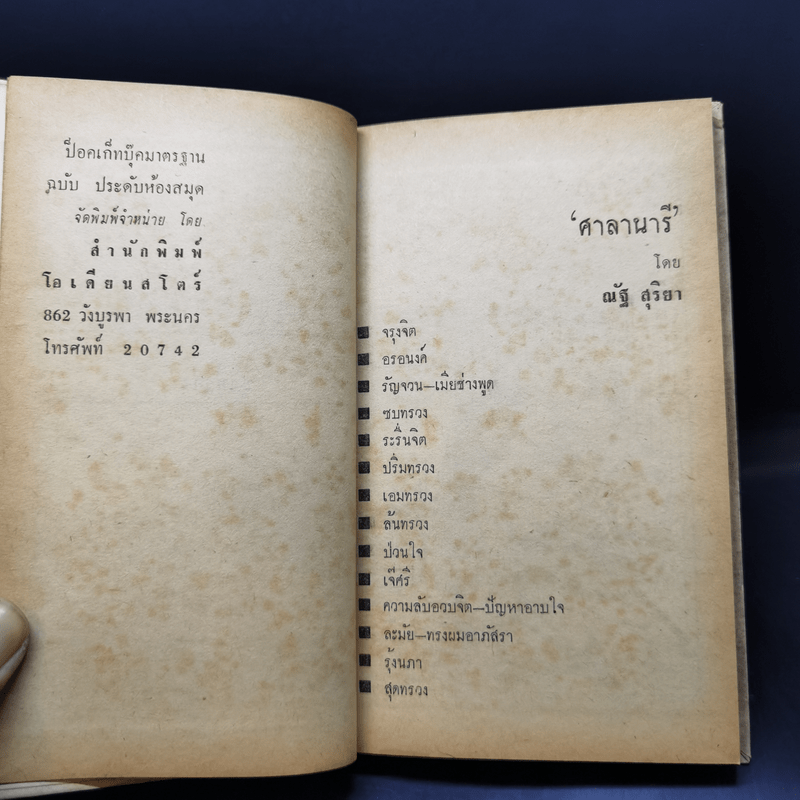 ป็อคเก็ทบุ๊คมาตรฐาน
ฉบับ ประดับห้องสมุด
จัดพิมพ์จำหน่าย โดย
สำนักพิมพ์
โอเดียนสโตร์
862 วังบูรพา พระนคร
โทรศัพท์ 20742
‘ศาลานารี’
โดย
ณัฐ สุริยา
จรุงจิต
อรอนงค์
รัญจวน–เมียช่างพูด
ซบทรวง
ระรื่นจิต
ปริ่มทรวง
เอมทรวง
ล้นทรวง
ป่วนใจ
เจ๊ศรี
ความลับอวบจิต–ปัญหาอาบใจ
ละมัย–ทรงผมอาภัสรา
รุ้งนภา
สุดทรวง